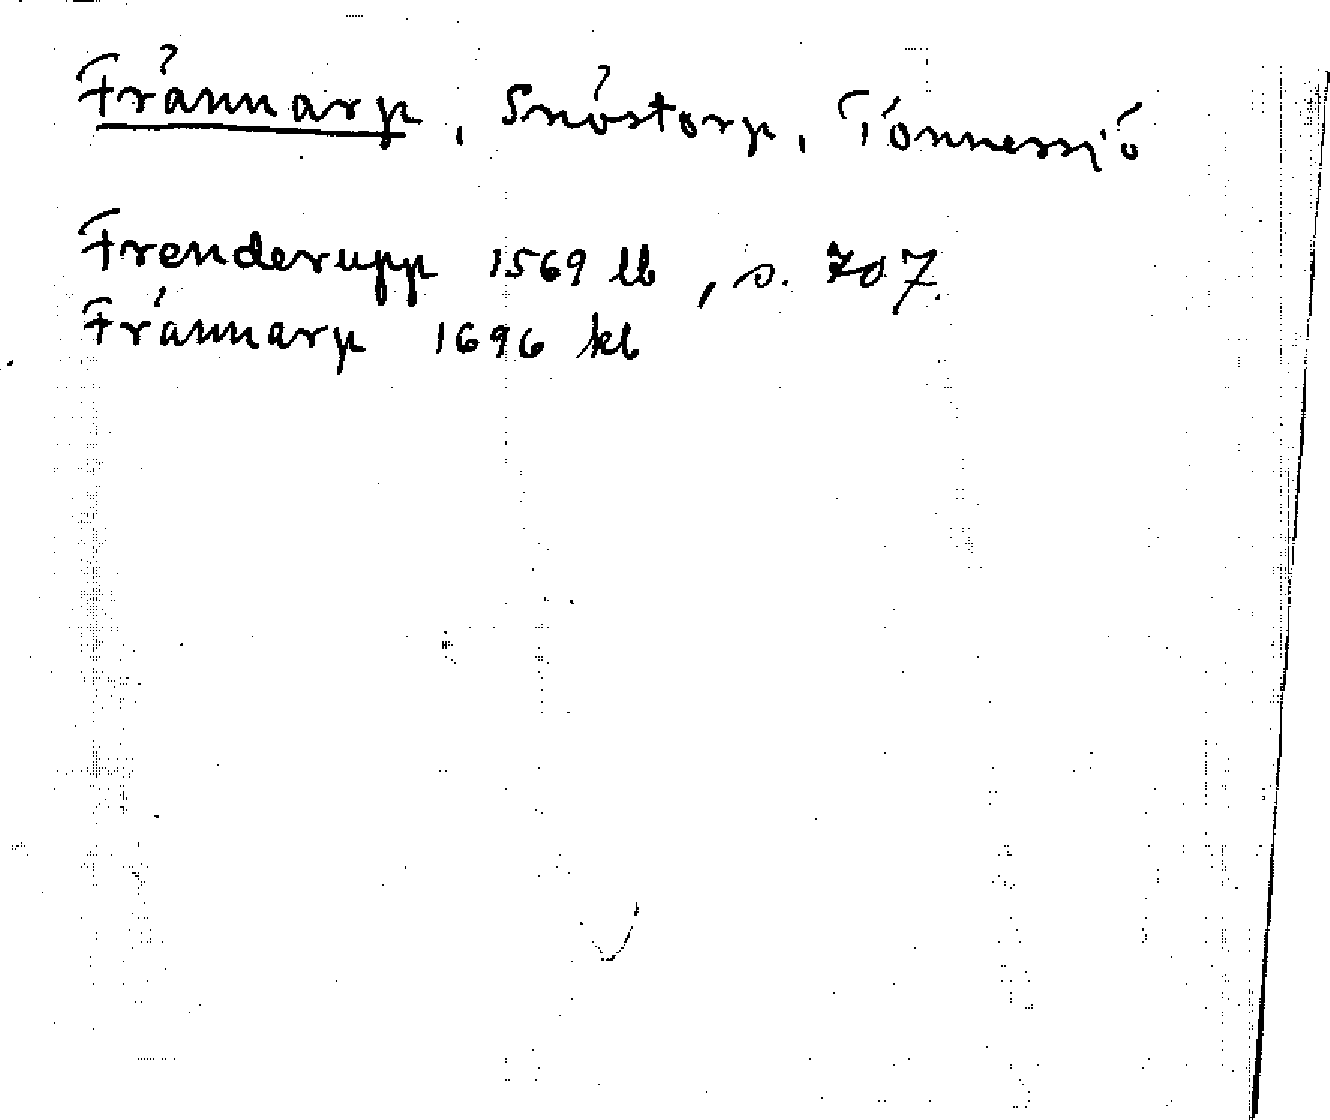 Frännarp, Snöstorp, Tönnersjö
Frenderupp 1569 lb, s. 707.
Frännarp 1696 kb